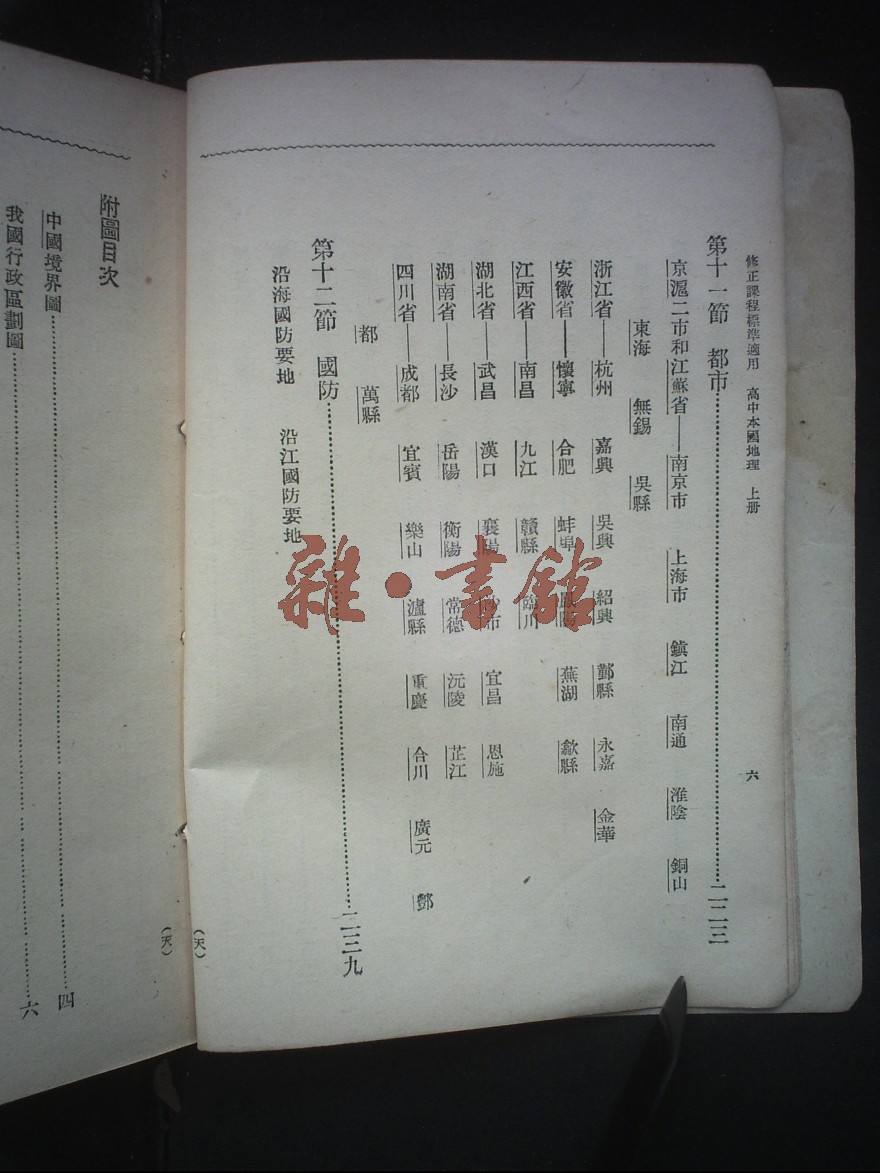 修正課程標準適用 高中本國地理 上册 六
第十一節 都市 二二三
京滬二市和江蘇省——南京市 上海市 鎮江 南通 淮陰 銅山
東海 無錫 吳縣
浙江省——杭州 嘉興 吳興 紹興 鄞縣 永嘉 金華
安徽省——懷寧 合肥 蚌埠 蕪湖 歙縣
江西省——南昌 九江 贛縣 臨川
湖北省——武昌 漢口 襄陽 沙市 宜昌 恩施
湖南省——長沙 岳陽 衡陽 常德 沅陵 芷江
四川省——成都 宜賓 樂山 瀘縣 重慶 合川 廣元 酆
都 萬縣
第十二節 國防 二三九
沿海國防要地 沿江國防要地
(天)
附圖目次
中國境界圖 四
我國行政區劃圖 六
(天)
雜·書館